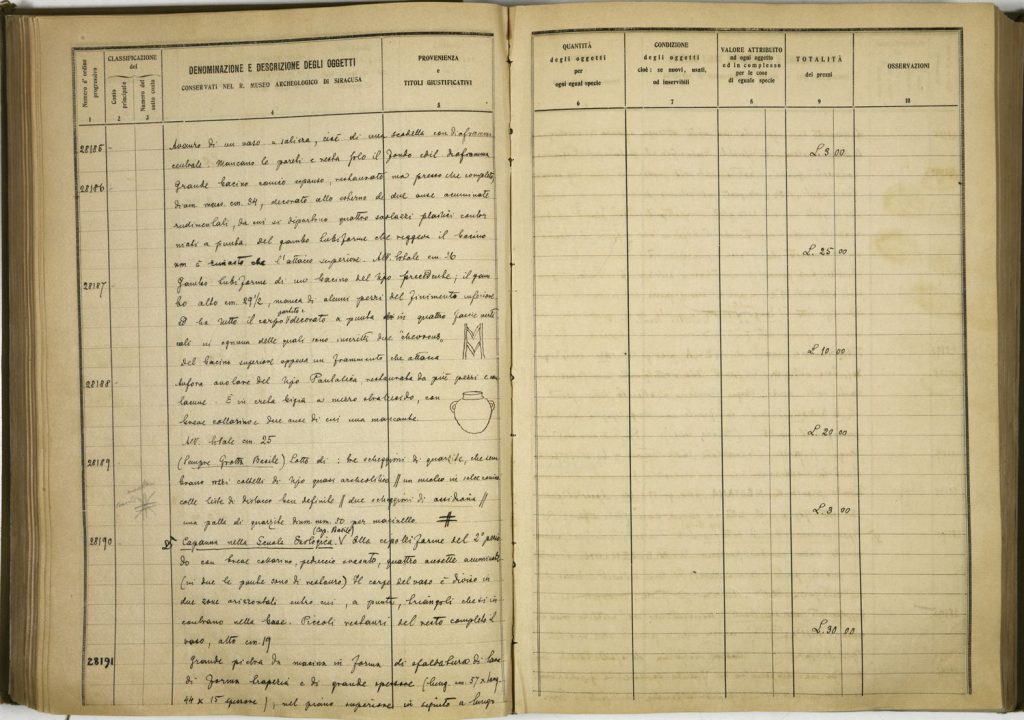 Numero d'ordine progressivo
CLASSIFICAZIONE
del
Conto principale
Numero del sotto conto
DENOMINAZIONE E DESCRIZIONE DEGLI OGGETTI
CONSERVATI NEL R. MUSEO ARCHEOLOGICO DI SIRACUSA
PROVENIENZA
e
TITOLI GIUSTIFICATIVI
1 2 3 4 5
28185 Avanzo di un vaso a saliera, cioè di una scodella con diaframma
centrale. Mancano le pareti e resta solo il fondo col diaframma
28186 Grande bacino espanso, restaurato ma presso che completo,
diam. mass. cm. 34, decorato allo esterno di due anse acuminate
da cui si dipartono quattro plastici
a punta. Del gambo tubiforme che reggeva il bacino
non è rimasto che l'attacco superiore. Alt. totale cm. 26
28187 Gambo tubiforme di un bacino del tipo precedente; il gam
bo alto cm. 29 1/2, manca di alcuni pezzi del finimento inferiore
Ed ha tutto il corpo partito e decorato a punta in quattro fascie verti
cali in ognuna delle quali sono inseriti due "chevrons"
del bacino superiore un frammento che attacca
28188 Anfora del tipo Pantalica, restaurata da più pezzi e con
lacune. È in creta bigia a con
breve collarino e due anse di cui una mancante.
Alt. totale cm. 25
28189 (Sempre Grotta Basile) Lotto di: tre scheggioni di quarzite, che sem
brano rozzi coltelli di tipo quasi archeolitico // un nucleo in selce
colle liste di distacco ben definite // due scheggioni di ossidiana //
una palla di quarzite diam. mm. 50 per macinello #
28190 Capanna nella Scuola Enologica. (Cag. Basile) Olla del 2° perio
do con breve collarino, peduccio svasato, quattro ansette acuminate
(in due le punte sono di restauro) Il corpo del vaso è diviso in
due zone orizzontali entro cui, a punta, triangoli che si in
contrano nella base. Piccoli restauri del resto completo il
vaso, alto cm. 19
28191 Grande pietra da macina in forma di sfaldatura di lava
di forma e di grande spessore (lung. cm. 57 x larg.
44 x 15 spessore), nel piano superiore in seguito a lungo
QUANTITÀ
degli oggetti
per
ogni egual specie
CONDIZIONE
degli oggetti
cioè: se nuovi, usati,
od inservibili
VALORE ATTRIBUITO
ad ogni oggetto
ed in complesso
per le cose
di eguale specie
TOTALITÀ
dei prezzi
OSSERVAZIONI
6 7 8 9 10
L. 3 00
L. 25 00
L. 10 00
L. 20 00
L. 3 00
L. 30 00